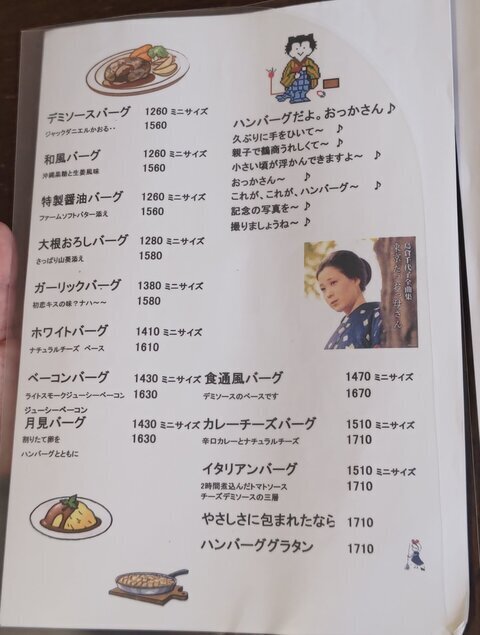 デミソースバーグ 1260 ミニサイズ
ジャックダニエルかおる・・ 1560
和風バーグ 1260 ミニサイズ
沖縄黒糖と生姜風味 1560
特製醤油バーグ 1260 ミニサイズ
ファームソフトバター添え 1560
大根おろしバーグ 1280 ミニサイズ
さっぱり山葵添え 1580
ガーリックバーグ 1380 ミニサイズ
初恋キスの味？ナハ～～ 1580
ホワイトバーグ 1410 ミニサイズ
ナチュラルチーズ ベース 1610
ベーコンバーグ 1430 ミニサイズ
ライトスモークジューシーベーコン 1630
ジューシーベーコン
月見バーグ 1430 ミニサイズ
割りたて卵を 1630
ハンバーグとともに
ハンバーグだよ。おっかさん♪
久ぶりに手をひいて～ ♪
親子で鶴商うれしくて～ ♪
小さい頃が浮かんできますよ～ ♪
おっかさん～ ♪
これが、これが、ハンバーグ～ ♪
記念の写真を～ ♪
撮りましょうね～ ♪
島倉千代子全曲集
東京だョおっ母さん
食通風バーグ 1470 ミニサイズ
デミソースのベースです 1670
カレーチーズバーグ 1510 ミニサイズ
辛口カレーとナチュラルチーズ 1710
イタリアンバーグ 1510 ミニサイズ
2時間煮込んだトマトソース 1710
チーズデミソースの三層
やさしさに包まれたなら 1710
ハンバーググラタン 1710